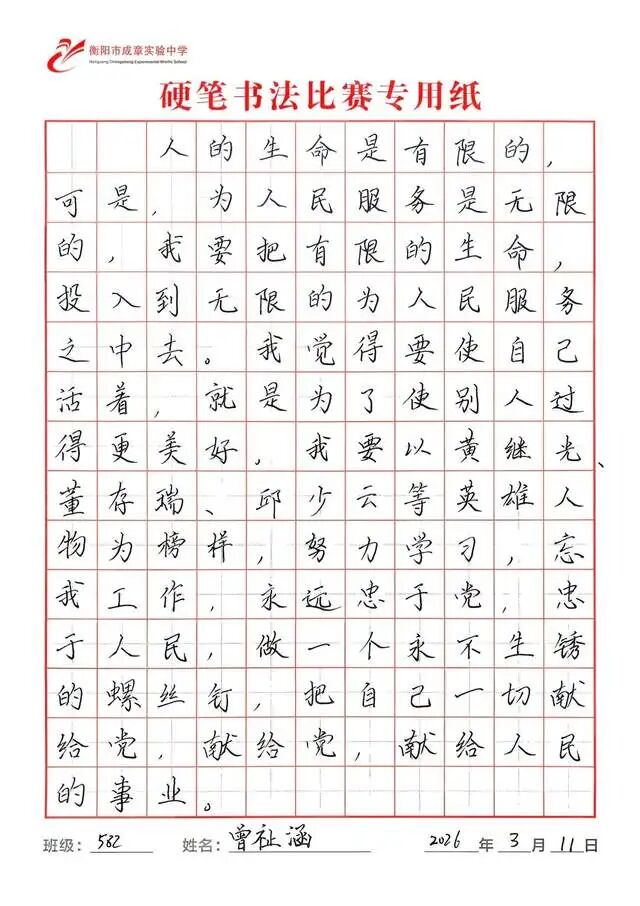 衡阳市成章实验中学
Hengyang Chengzhang Experimental Middle School
硬笔书法比赛专用纸
人的生命是有限的，
可是，为人民服务是无限
的，我要把有限的生命，
投入到无限的为人民服务
之中去。我觉得要使自己
活着，就是为了使别人过
得更美好。我要以黄继光、
董存瑞、邱少云等英雄人
物为榜样，努力学习，忘
我工作，永远忠于党，忠
于人民，做一个永不生锈
的螺丝钉，把自己一切献
给党，献给党，献给人民
的事业。
班级：582 姓名：曾祉涵 2026年3月11日